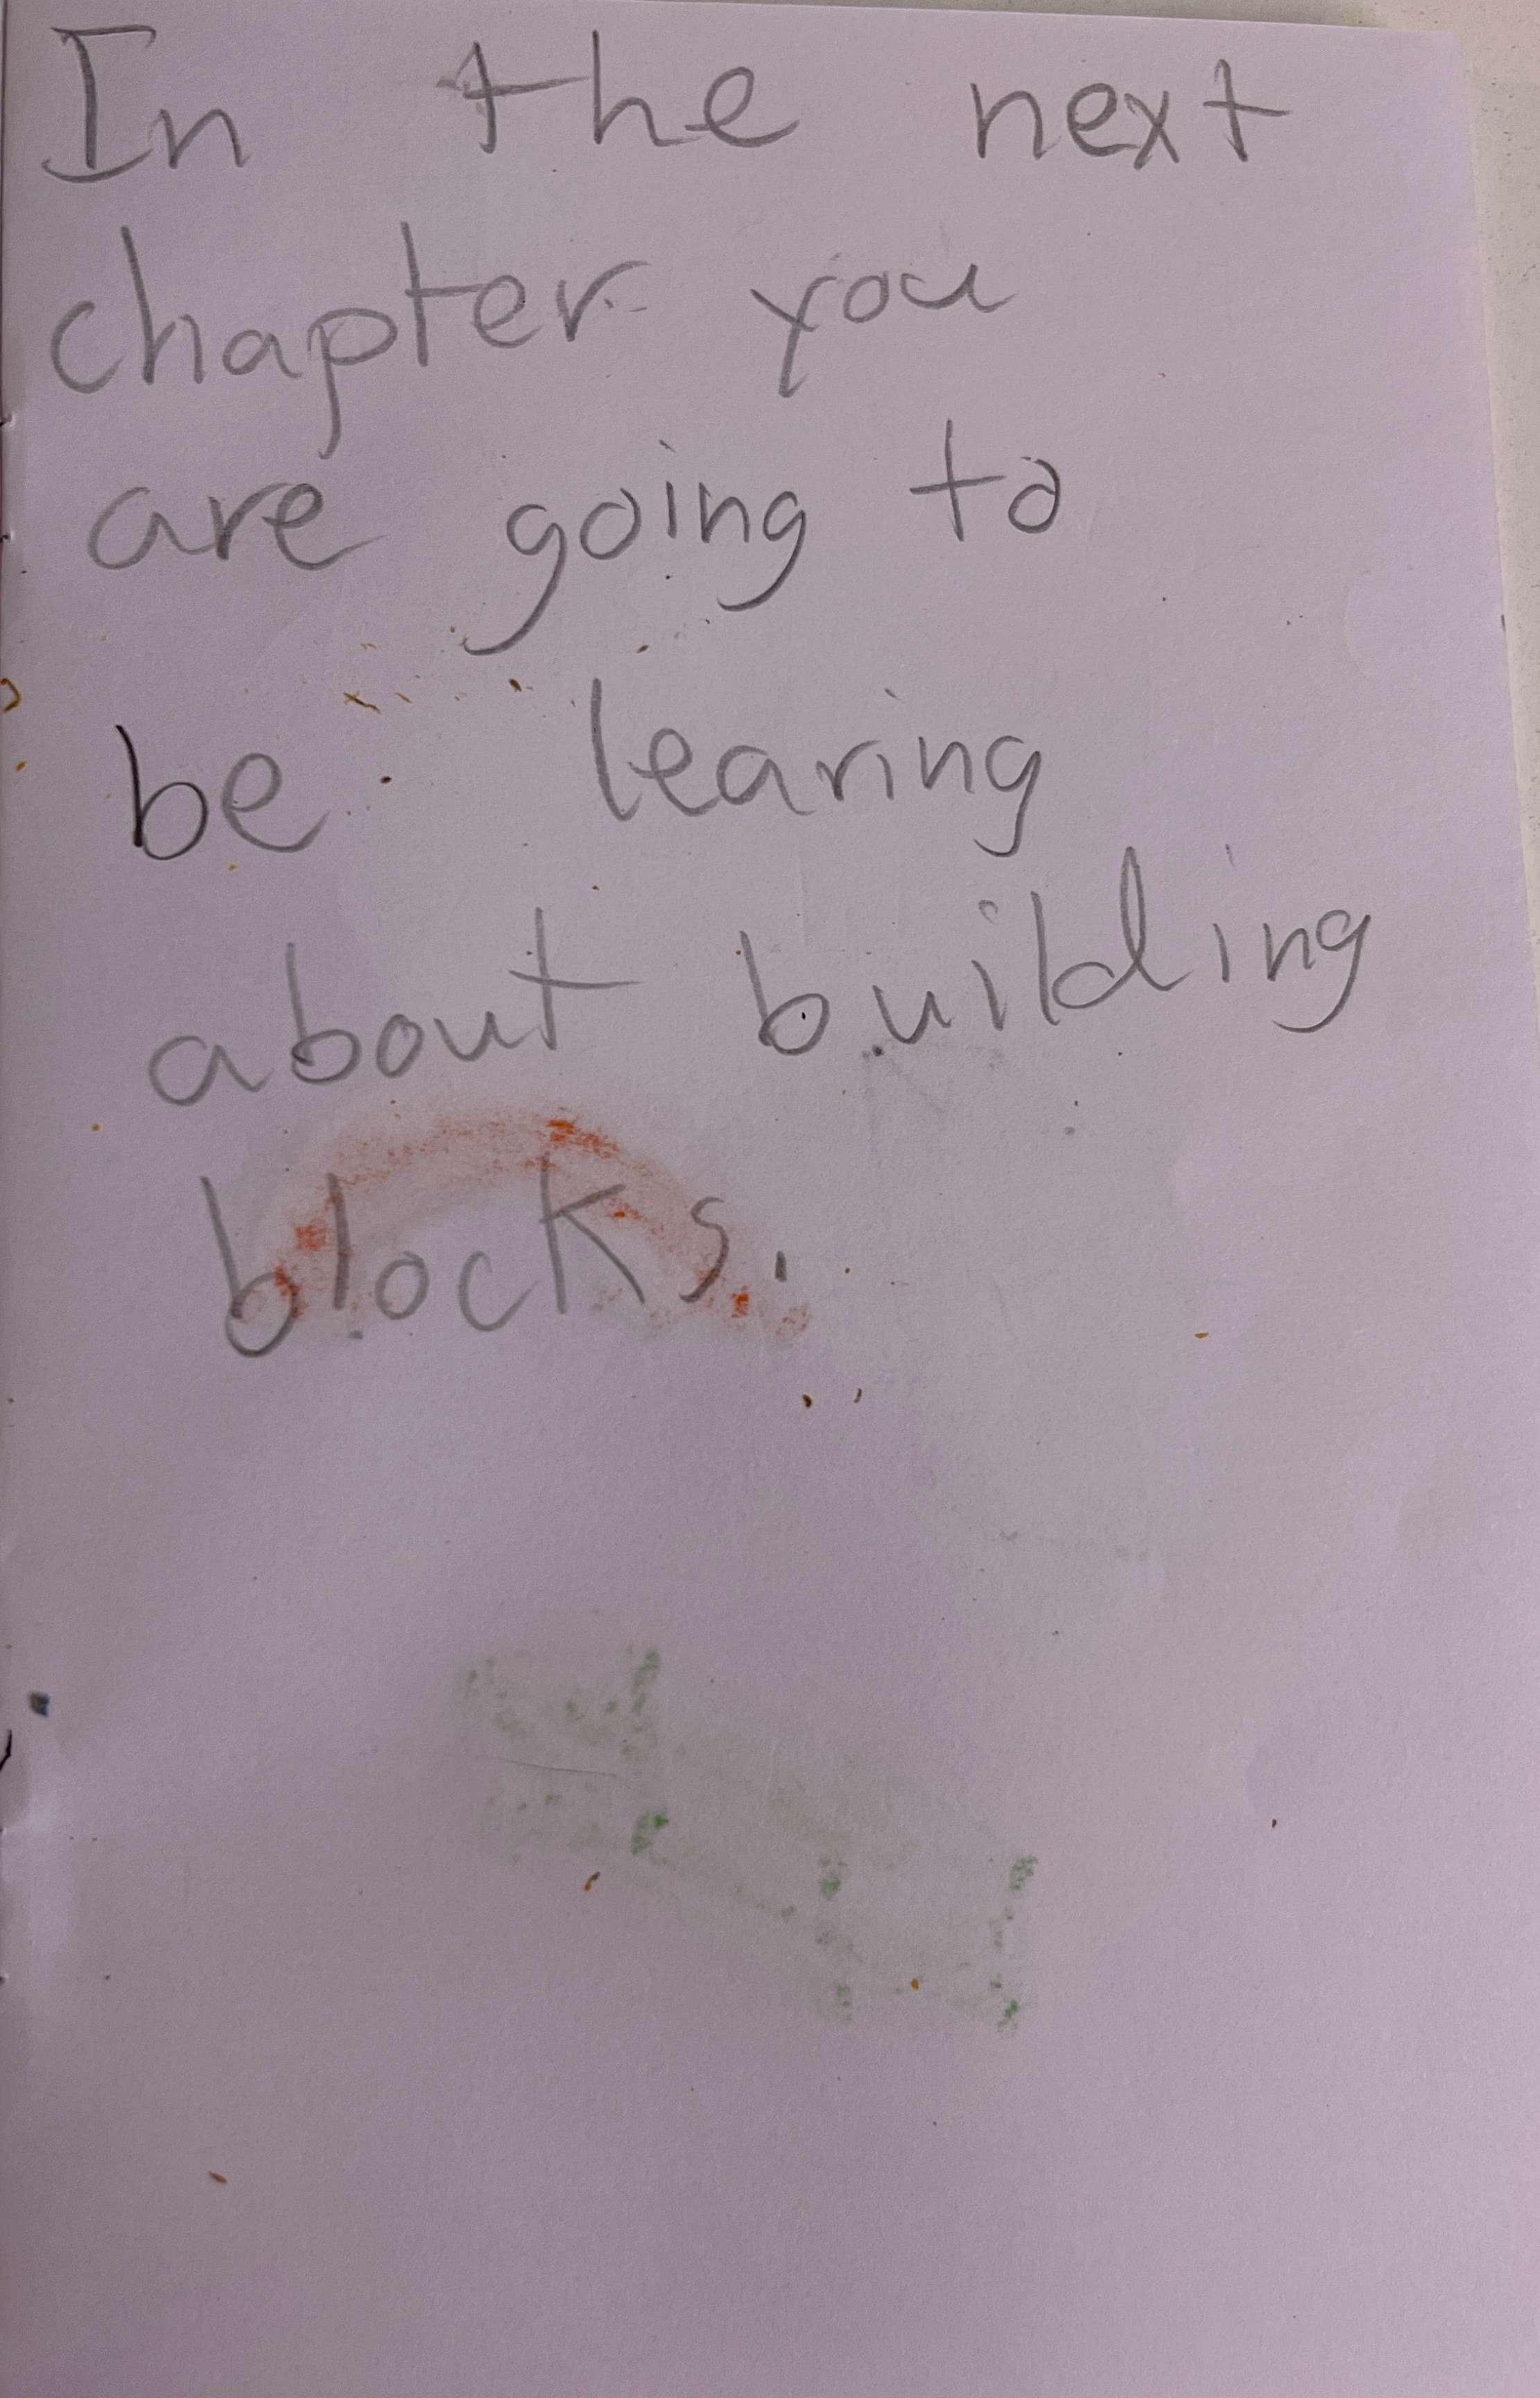 In the next
chapter you
are going to
be learing
about building
blocks.